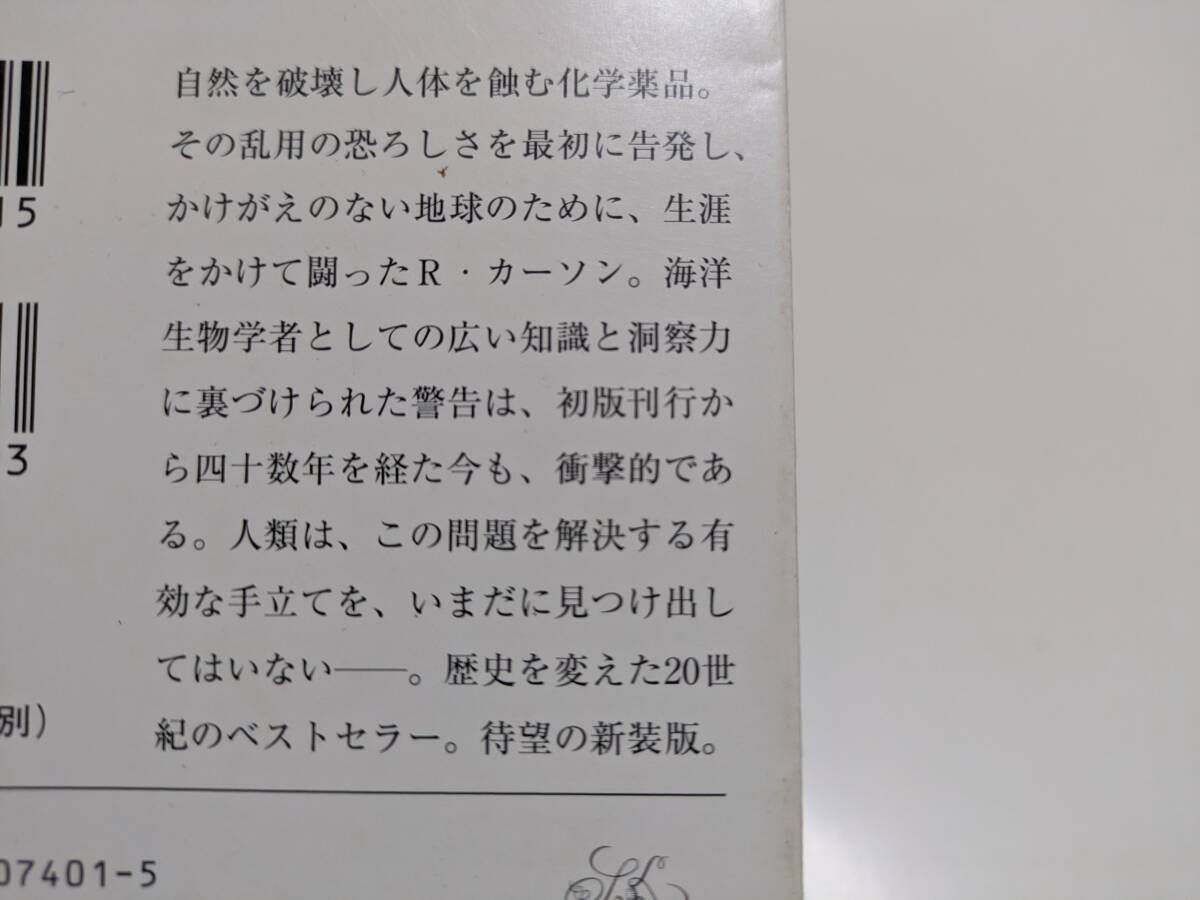 自然を破壊し人体を蝕む化学薬品。
その乱用の恐ろしさを最初に告発し、
かけがえのない地球のために、生涯
をかけて闘ったR・カーソン。海洋
生物学者としての広い知識と洞察力
に裏づけられた警告は、初版刊行か
ら四十数年を経た今も、衝撃的であ
る。人類は、この問題を解決する有
効な手立てを、いまだに見つけ出し
てはいない――。歴史を変えた20世
紀のベストセラー。待望の新装版。
15
3
別)
07401-5